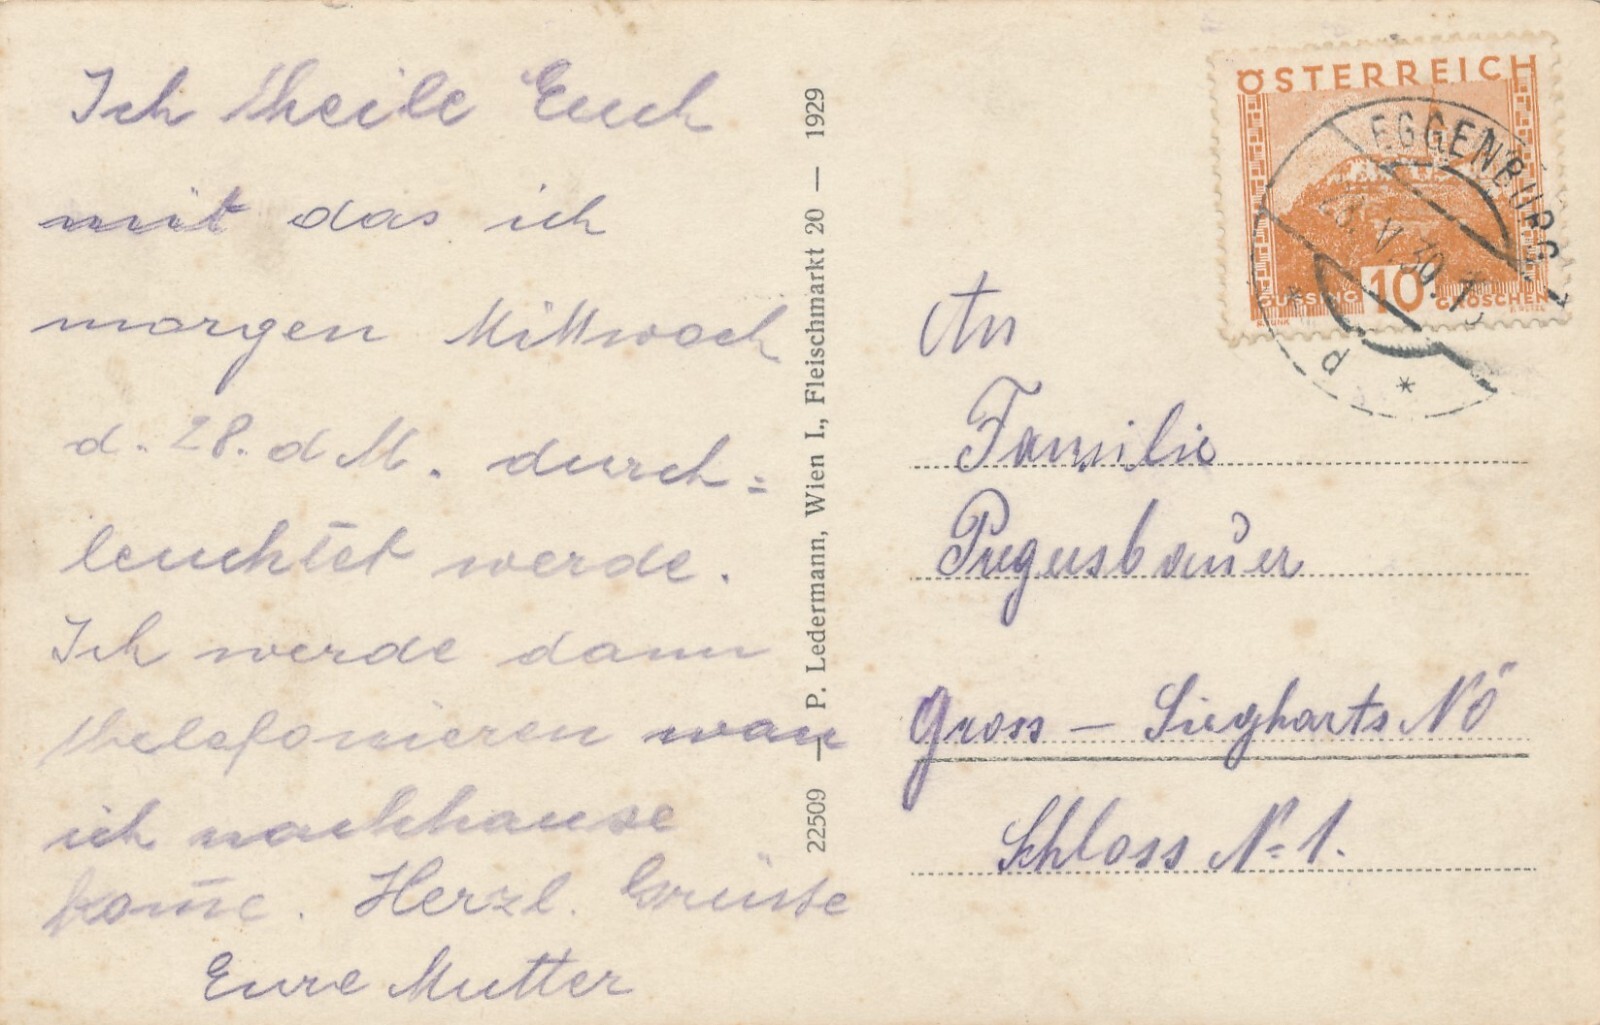 Ich theile Euch
mit das ich
morgen Mittwoch
d. 28. d M. durch=
leuchtet werde.
Ich werde dann
thelefonieren wan
ich nachhause
kom̄e. Herzl. Grüsse
Eure Mutter
22509 — P. Ledermann, Wien I., Fleischmarkt 20 — 1929
ÖSTERREICH
EGGENBURG
V.30
GÜSSING 10 GROSCHEN
An
Familie
Gross – Siegharts NÖ
Schloss N= 1.